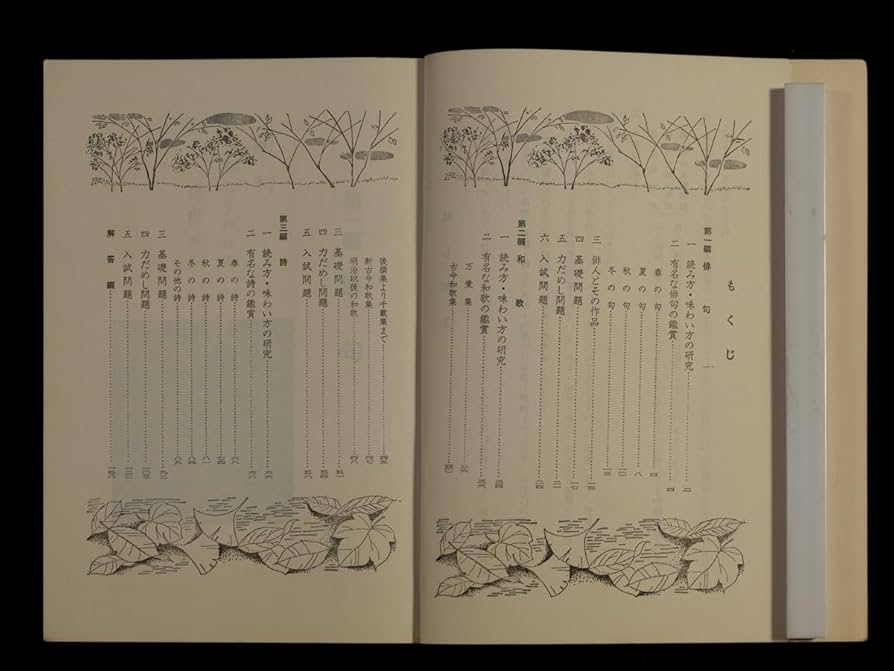 もくじ
第一編 俳句
一 読み方・味わい方の研究……二
二 有名な俳句の鑑賞……四
春の句……四
夏の句……八
秋の句……一〇
冬の句……一三
三 俳人とその作品……一五
四 基礎問題……一七
五 力だめし問題……二一
六 入試問題……二四
第二編 和歌
一 読み方・味わい方の研究
二 有名な和歌の鑑賞
万葉集
古今和歌集
後撰集より千載集まで
新古今和歌集
明治以後の和歌
三 基礎問題
四 力だめし問題
五 入試問題
第三編 詩
一 読み方・味わい方の研究……六六
二 有名な詩の鑑賞……六八
春の詩……六八
夏の詩
秋の詩……八一
冬の詩
その他の詩……八八
三 基礎問題
四 力だめし問題
五 入試問題
解答編